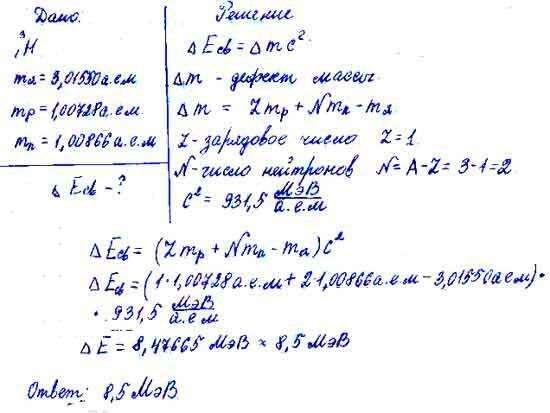 Дано:
³₁H
mя = 3,01550 а.е.м
mp = 1,00728 а.е.м
mn = 1,00866 а.е.м
Δ Eсв - ?
Решение
Δ Eсв = Δ m c²
Δ m - дефект массы.
Δ m = Z mp + N mn - mя
Z - зарядовое число Z = 1.
N - число нейтронов N = A - Z = 3 - 1 = 2
c² = 931,5 МэВ/а.е.м
Δ Eсв = (Z mp + N mn - mя) c²
Δ Eсв = (1·1,00728 а.е.м + 2·1,00866 а.е.м - 3,01550 а.е.м) ·
· 931,5 МэВ/а.е.м
Δ E = 8,47665 МэВ ≈ 8,5 МэВ
Ответ: 8,5 МэВ.